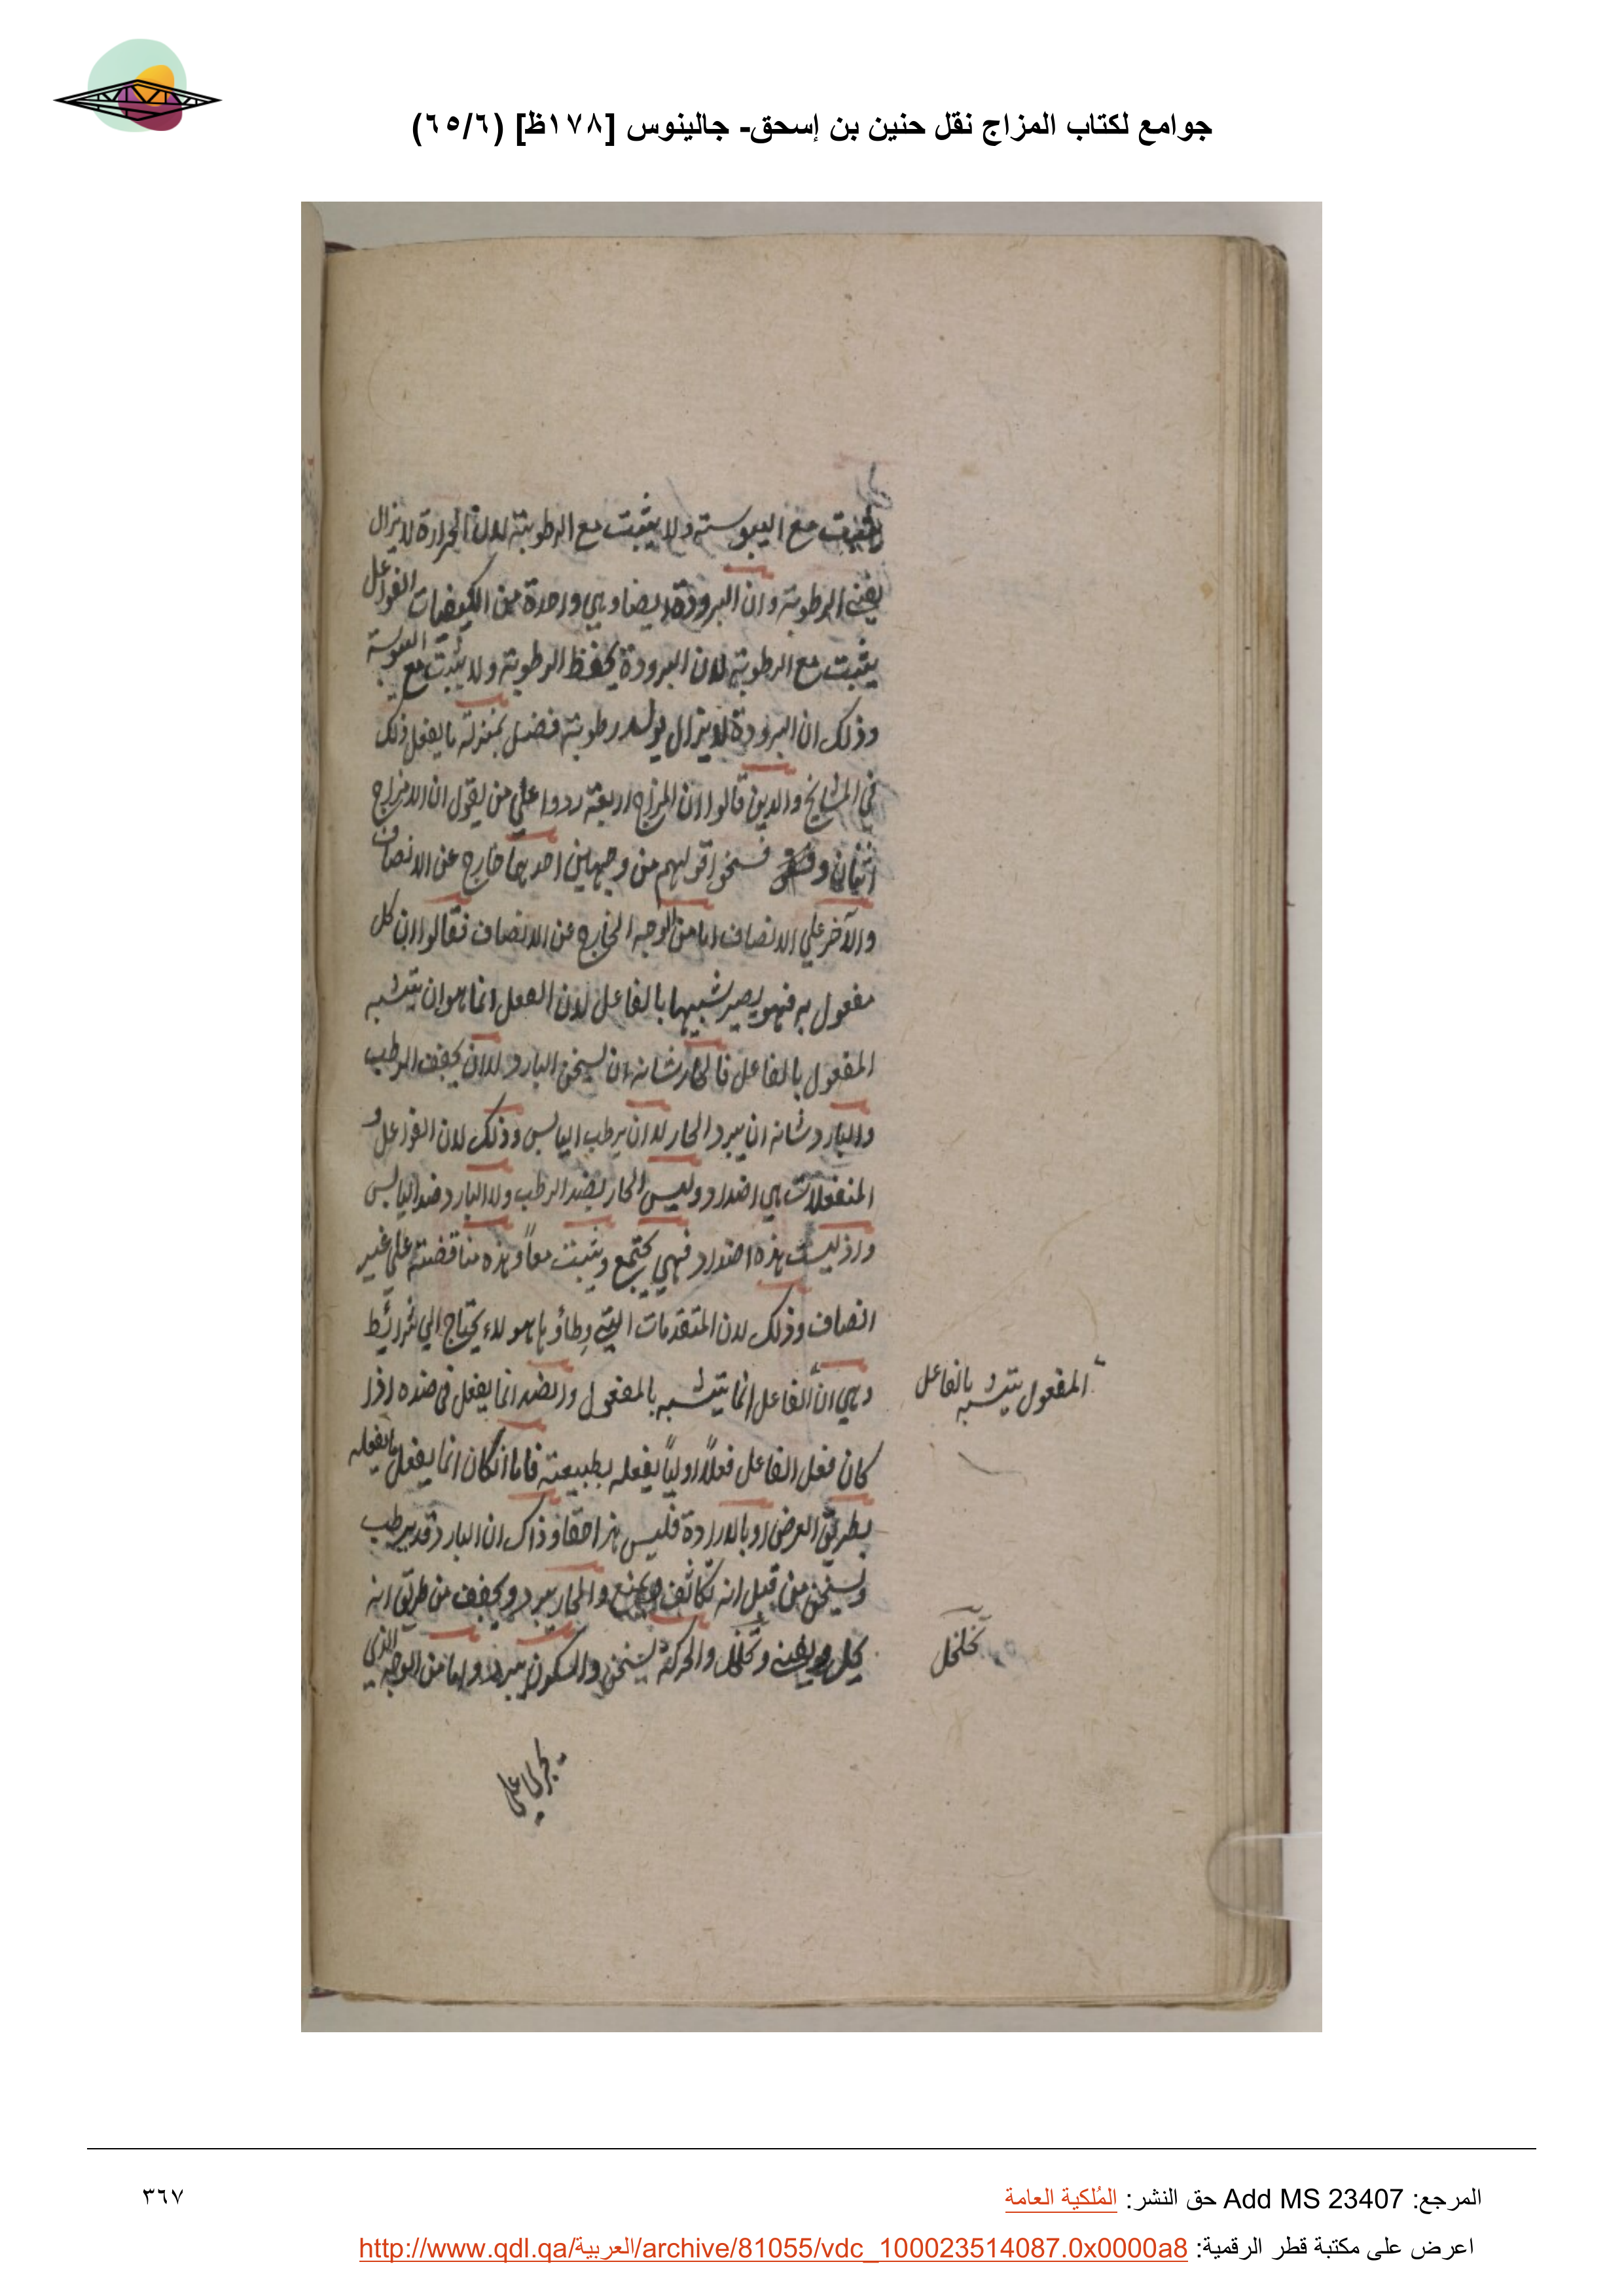 جوامع لكتاب المزاج نقل حنين بن إسحق- جالينوس [١٧٨ظ] (٦٥/٦)
يثبت مع اليبوسة ولا يثبت مع الرطوبة لان الحرارة لا يزال
يفنى الرطوبة وان البرودة ايضا وهي واحدة من الكيفيات الفواعل
يثبت مع الرطوبة لان البرودة يحفظ الرطوبة ولا يثبت مع اليبوسة
وذلك ان البرودة لا يزال يولد رطوبة فضل بمنزلة ما يفعل ذلك
في المشايخ والذين قالوا ان المزاج اربعة ردوا علي من يقول ان الامزاج
اثنان فسخوا قولهم من وجهين احديهما خارج عن الانصاف
والآخر علي الانصاف اما من الوجه الخارج عن الانصاف فقالوا ان كل
مفعول به فهو يصير شبيها بالفاعل لان الفعل انما هو ان يتشبه
المفعول بالفاعل فالحار شانه ان يسخن البارد لا ان يجفف الرطب
والبارد شانه ان يبرد الحار لا ان يرطب اليابس وذلك لان الفواعل و
المنفعلات هي اضداد وليس الحار بضد الرطب ولا البارد ضد اليابس
واذ ليست هذه اضداد فهي يجتمع ويثبت معاً وهذه مناقضة علي غير
انصاف وذلك لان المتقدمات التي وطاؤها هولاء يحتاج الي شرائط
وهي انّ الفاعل انما يتشبه بالمفعول والضد انما يفعل في ضده اذا
المفعول يتشبه بالفاعل
كان فعل الفاعل فعلاً اولياً يفعله بطبيعته فاما انكان انما يفعل ما يفعله
بطريق العرض او بالارادة فليس هذا حقا وذاك ان البارد قد يرطب
ويسخن من قبل انه تكاثف ويمنع والحار يبرد ويجفف من طريق انه
يحل ويفنى والحركة يسخن والسكون يبرد واما من الوجه الذي
تخلخل
يجري علي
المرجع: Add MS 23407 حق النشر: المُلكية العامة
٣٦٧
اعرض على مكتبة قطر الرقمية: http://www.qdl.qa/العربية/archive/81055/vdc_100023514087.0x0000a8